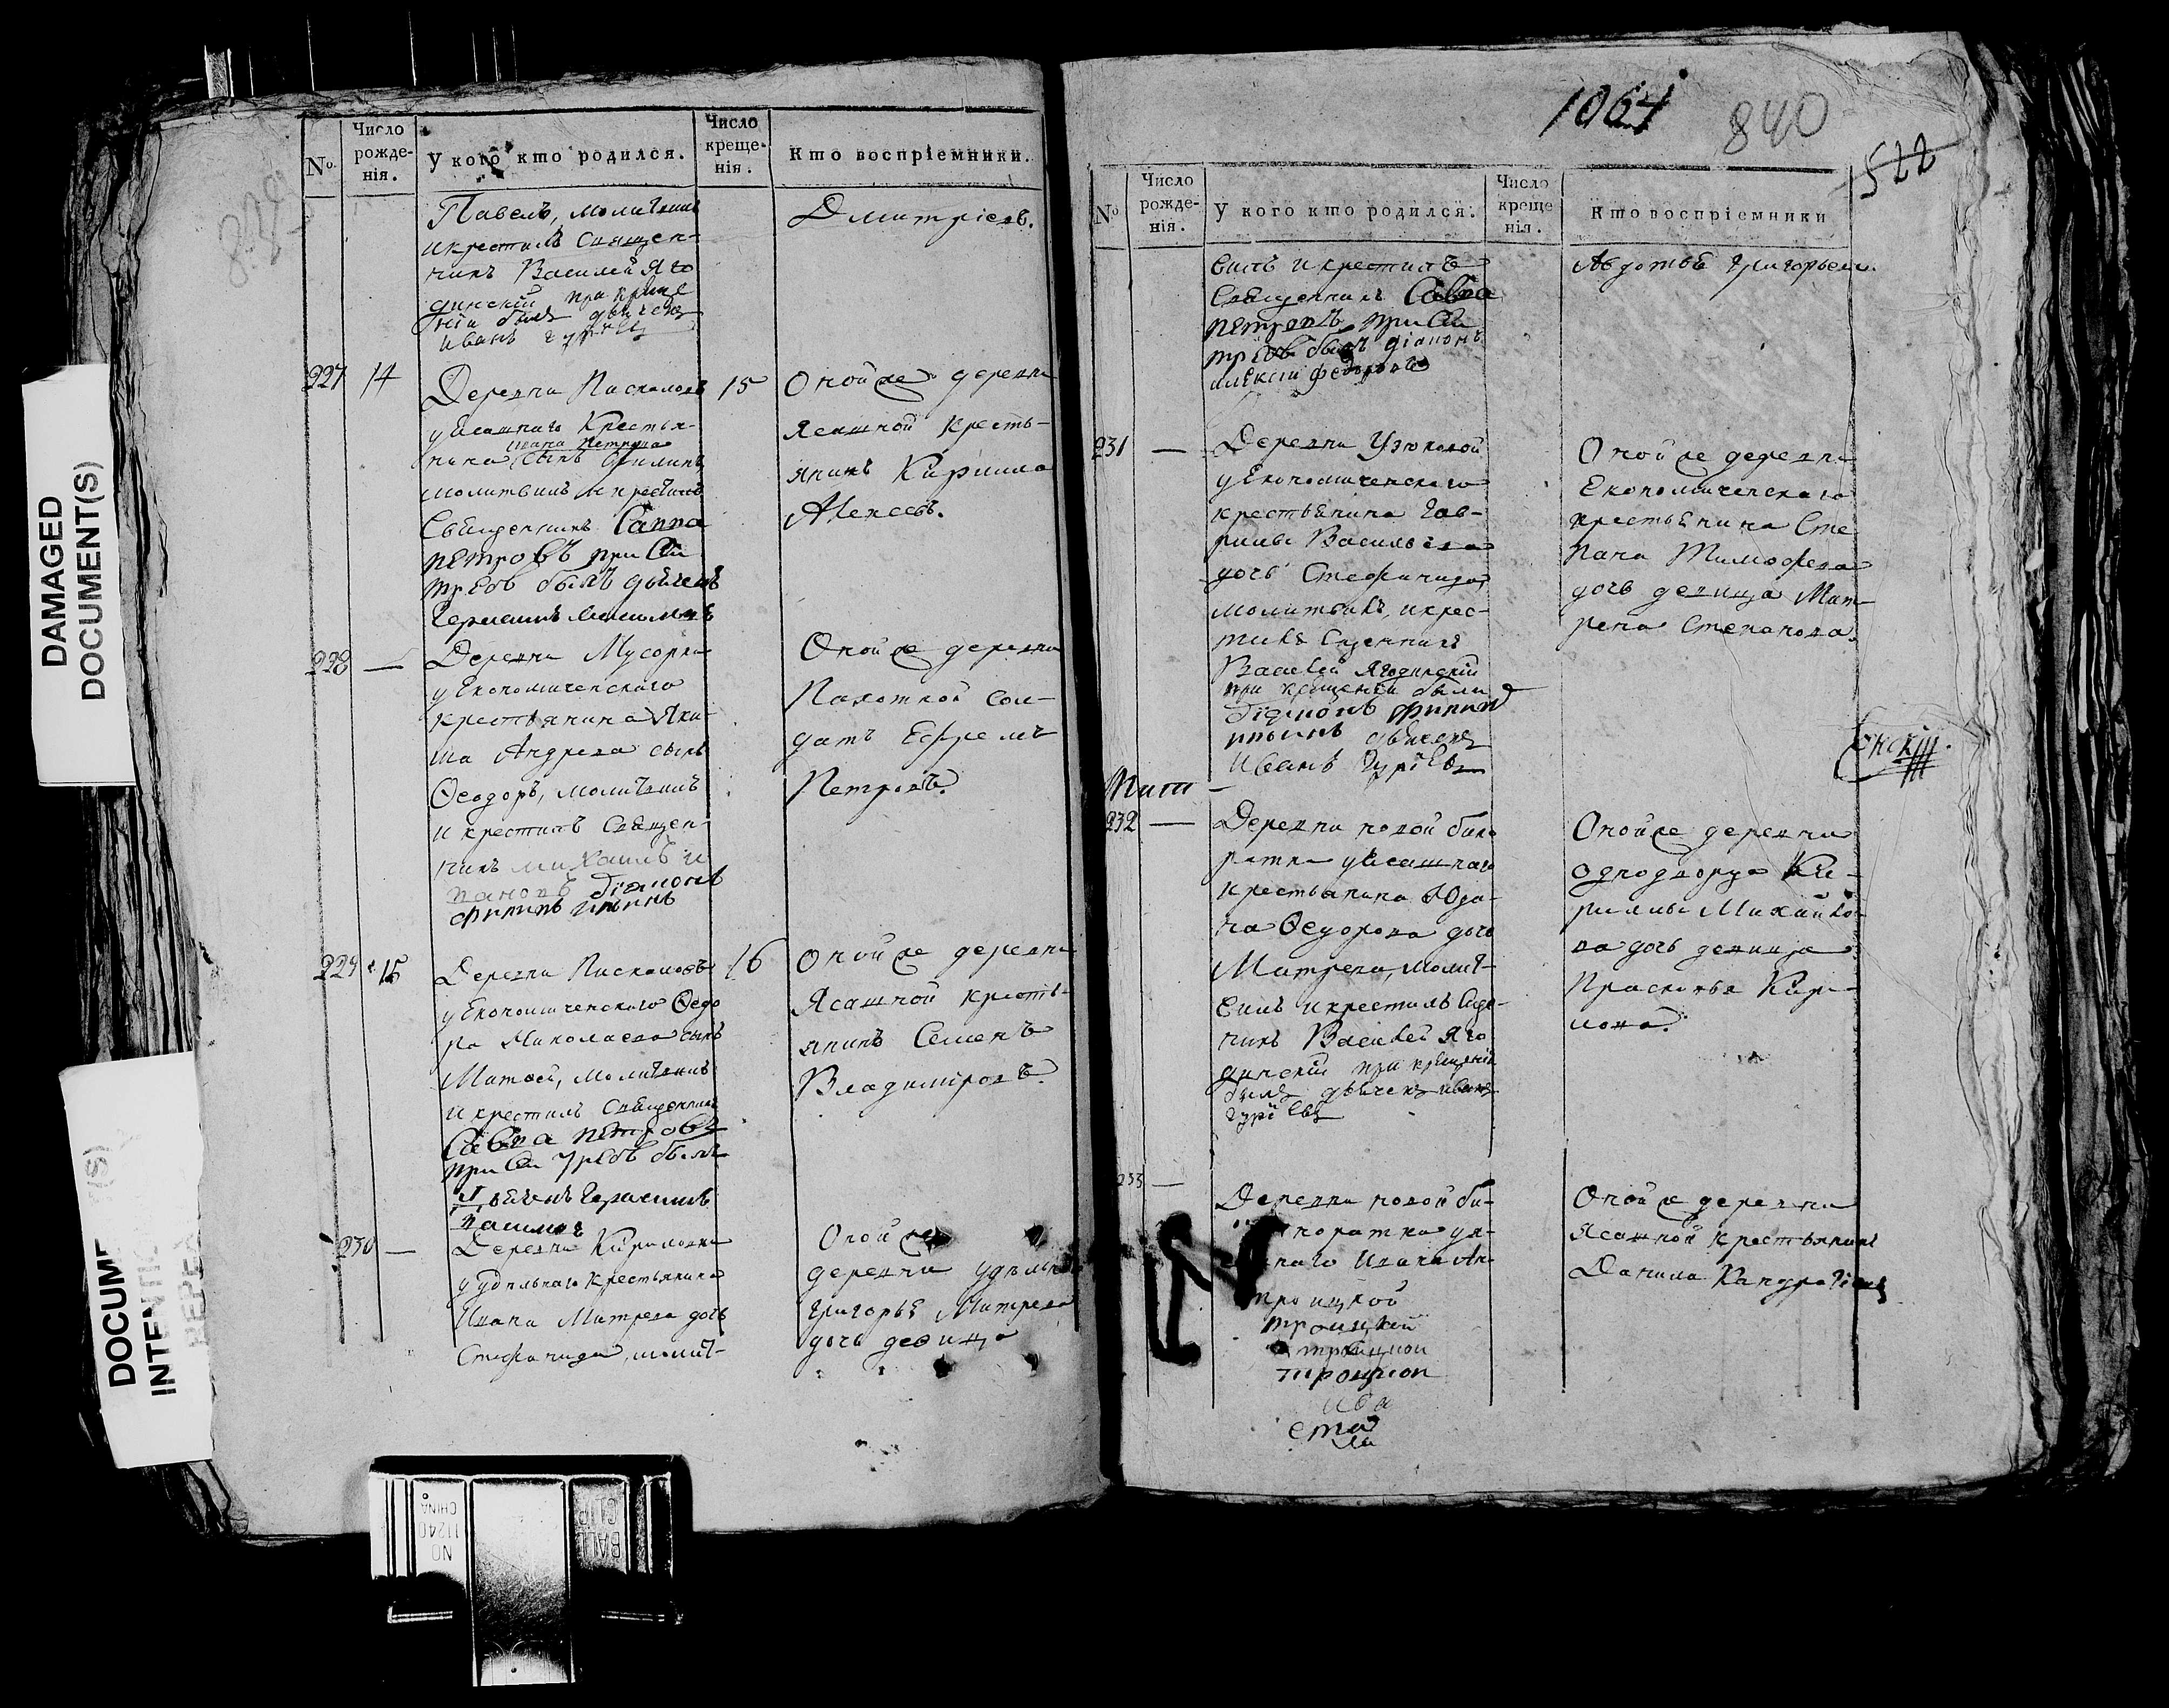 DAMAGED
DOCUMENT(S)
839
No.
Число рожде-нія.
У кого кто родился.
Число креще-нія.
Кто воспріемники.
Павелъ, молитвилъ
и крестилъ Священ-
никъ Василей Яго
динскій при креще
ніи былъ дьячекъ
иванъ гурьевъ
Дмитріевъ.
227 14
Деревни Пискаловъ
у Ясашнаго Крестья-
Ивана Петрова
нина сынъ Филипъ,
молитвилъ и крестилъ
Священникъ Савва
петровъ при сей
требѣ былъ дьячекъ
Герасимъ
15
Оной же деревни
Ясашной кресть-
янинъ Кирилла
Алексеевъ.
228 —
Деревни Мусорки
у Економическаго
крестьянина Яки-
ма Андреева сынъ
Ѳеодоръ, молитвилъ
и крестилъ Священ-
никъ михаилъ и
пановъ діаконъ
филипъ ильинъ
Оной же деревни
Пахотной сол-
датъ Ефремъ
Петровъ.
229 15
Деревни Пискаловъ
у Економическаго Ѳедо
ра Николаева сынъ
Матвей, молитвилъ
и крестилъ Священникъ
Савва петровъ
при сей требѣ былъ
дьячекъ Герасимъ
16
Оной же деревни
Ясашной кресть-
янинъ Семенъ
Владимировъ.
230 —
Деревни Кириловки
у удѣльнаго крестьянина
Ивана Митрева дочь
Стефанида, молит-
Оной же
деревни удѣльн
Григорья Митрева
дочь девица
1064
840
522
No
Число рожде-нія.
У кого кто родился.
Число креще нія.
Кто воспріемники
вилъ и крестилъ
Священникъ Савва
петровъ при сей
требѣ былъ діаконъ
алексій федоровъ
Авдотья Григорьева.
231 —
Деревни Узюковой
у Економическаго
крестьянина Гав-
рилы Васильева
дочь Стефанида,
молитвилъ, и крес-
тилъ Сщенникъ
Василей Ягодинскій
при крещеніи были
діаконъ филипъ
ильинъ дьячекъ
Иванъ Гурьевъ
Оной же деревни
Економическаго
крестьянина Сте
пана Тимофеева
дочь девица Мат
рена Степанова.
232 —
Деревни новой бина
ратки у Ясашнаго
крестьянина Юди-
на Ѳедорова дочь
Матрена, молит-
вилъ и крестилъ Сще-
никъ Василей Яго
динскій при крещеніи
былъ дьячекъ иванъ
гурьевъ
Оной же деревни
однодворца Ки-
рилы Михайло-
ва дочь девица
Прасковья Кири-
лова.
233 —
Деревни новой би-
наратки у я-
шнаго Ивана Ан-
троицкой
троицкой
троицкой
троицкой
Оной же деревни
Ясашной крестьянинъ
Данила Кандратьевъ
NO
11240
CHINA
BALL
CLIP